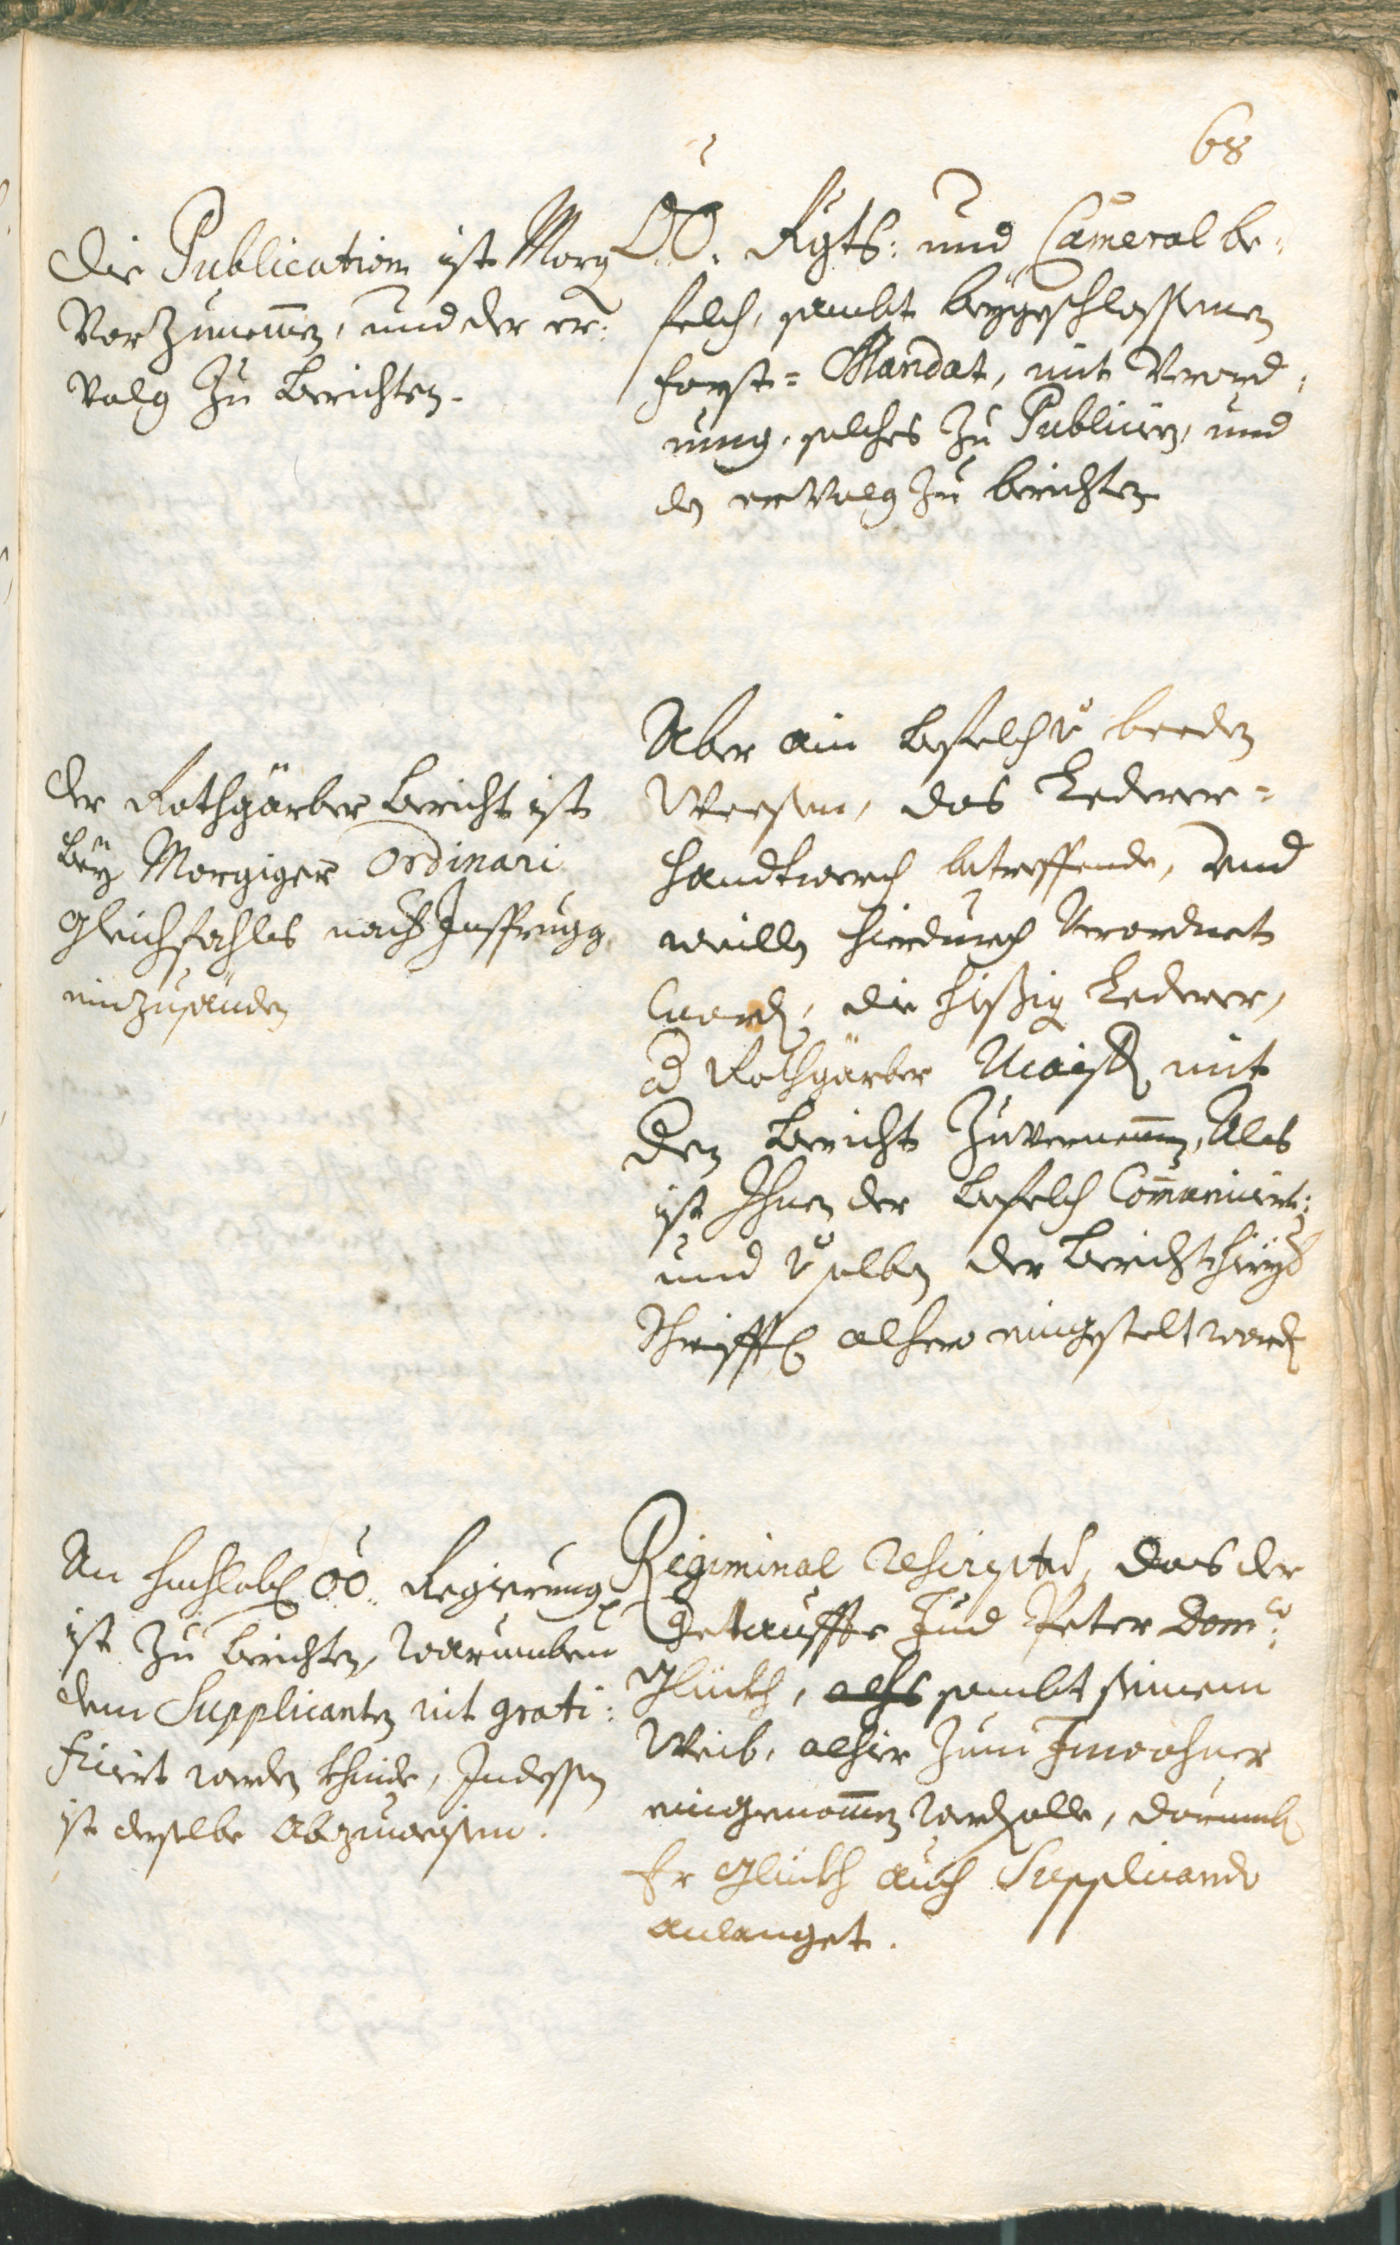 68
Die Publication ist Morg
Vorzunemen, und der er:
volg zu berichten.
ÖÖ. Rgts: und Cameral be:
felch, sambt beygeschlossenen
Forst= Mandat, mit Verord:
nung, solches zu Publiciren, und
den ervolg zu berichten
Der Rothgärber Bericht ist
bey Morgiger Ordinari
gleichfahls nach Insprugg
einzusänden
Über ain Befelch beeder
Weesen, das Lederer=
handtwerch betreffende, und
weillen hierdurch Verordnet
worden, die hießig Lederer,
Rothgärber Maister mit
den Bericht zuvernemen, Als
ist Ihnen der Befelch Communicirt:
und selben der Bericht
Schrifftl alhero eingestelt worden
An hochlobl ÖÖ. Regierung
ist zu berichten, warumben
dem Supplicanten nit grati:
ficirt werden khinde, Indessen
ist derselbe abzuweisen.
Regiminal Rescript, das der
Getauffte Jud Peter Dom:co
Glückh, alhs sambt seinem
Weib, alhier zum Inwohner
eingenomen werden solle, darumb
Er Glückh auch Supplicando
anlanget.